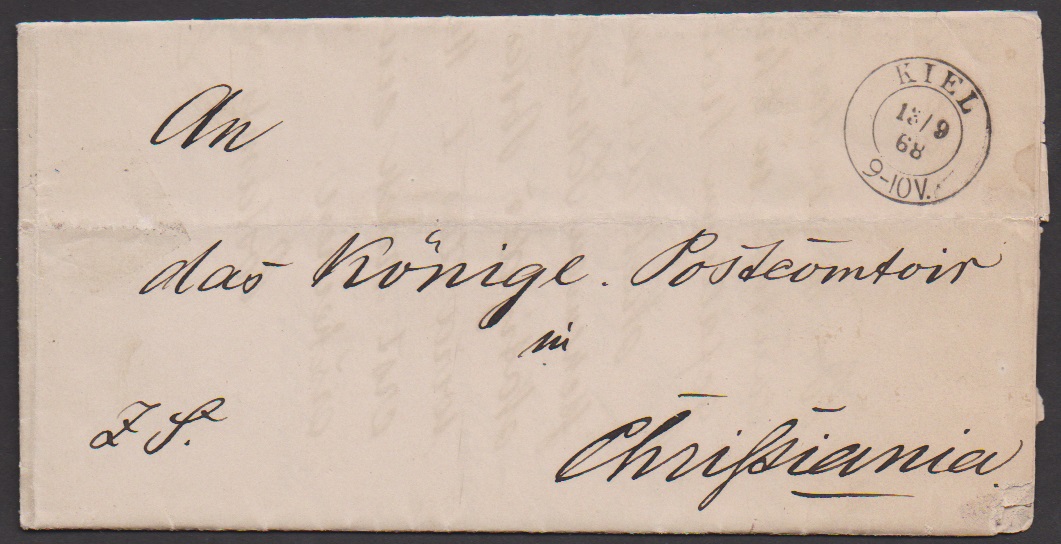 An
KIEL
13/9
68
9-10V.
das Königl. Postcomtoir
in
Christiania